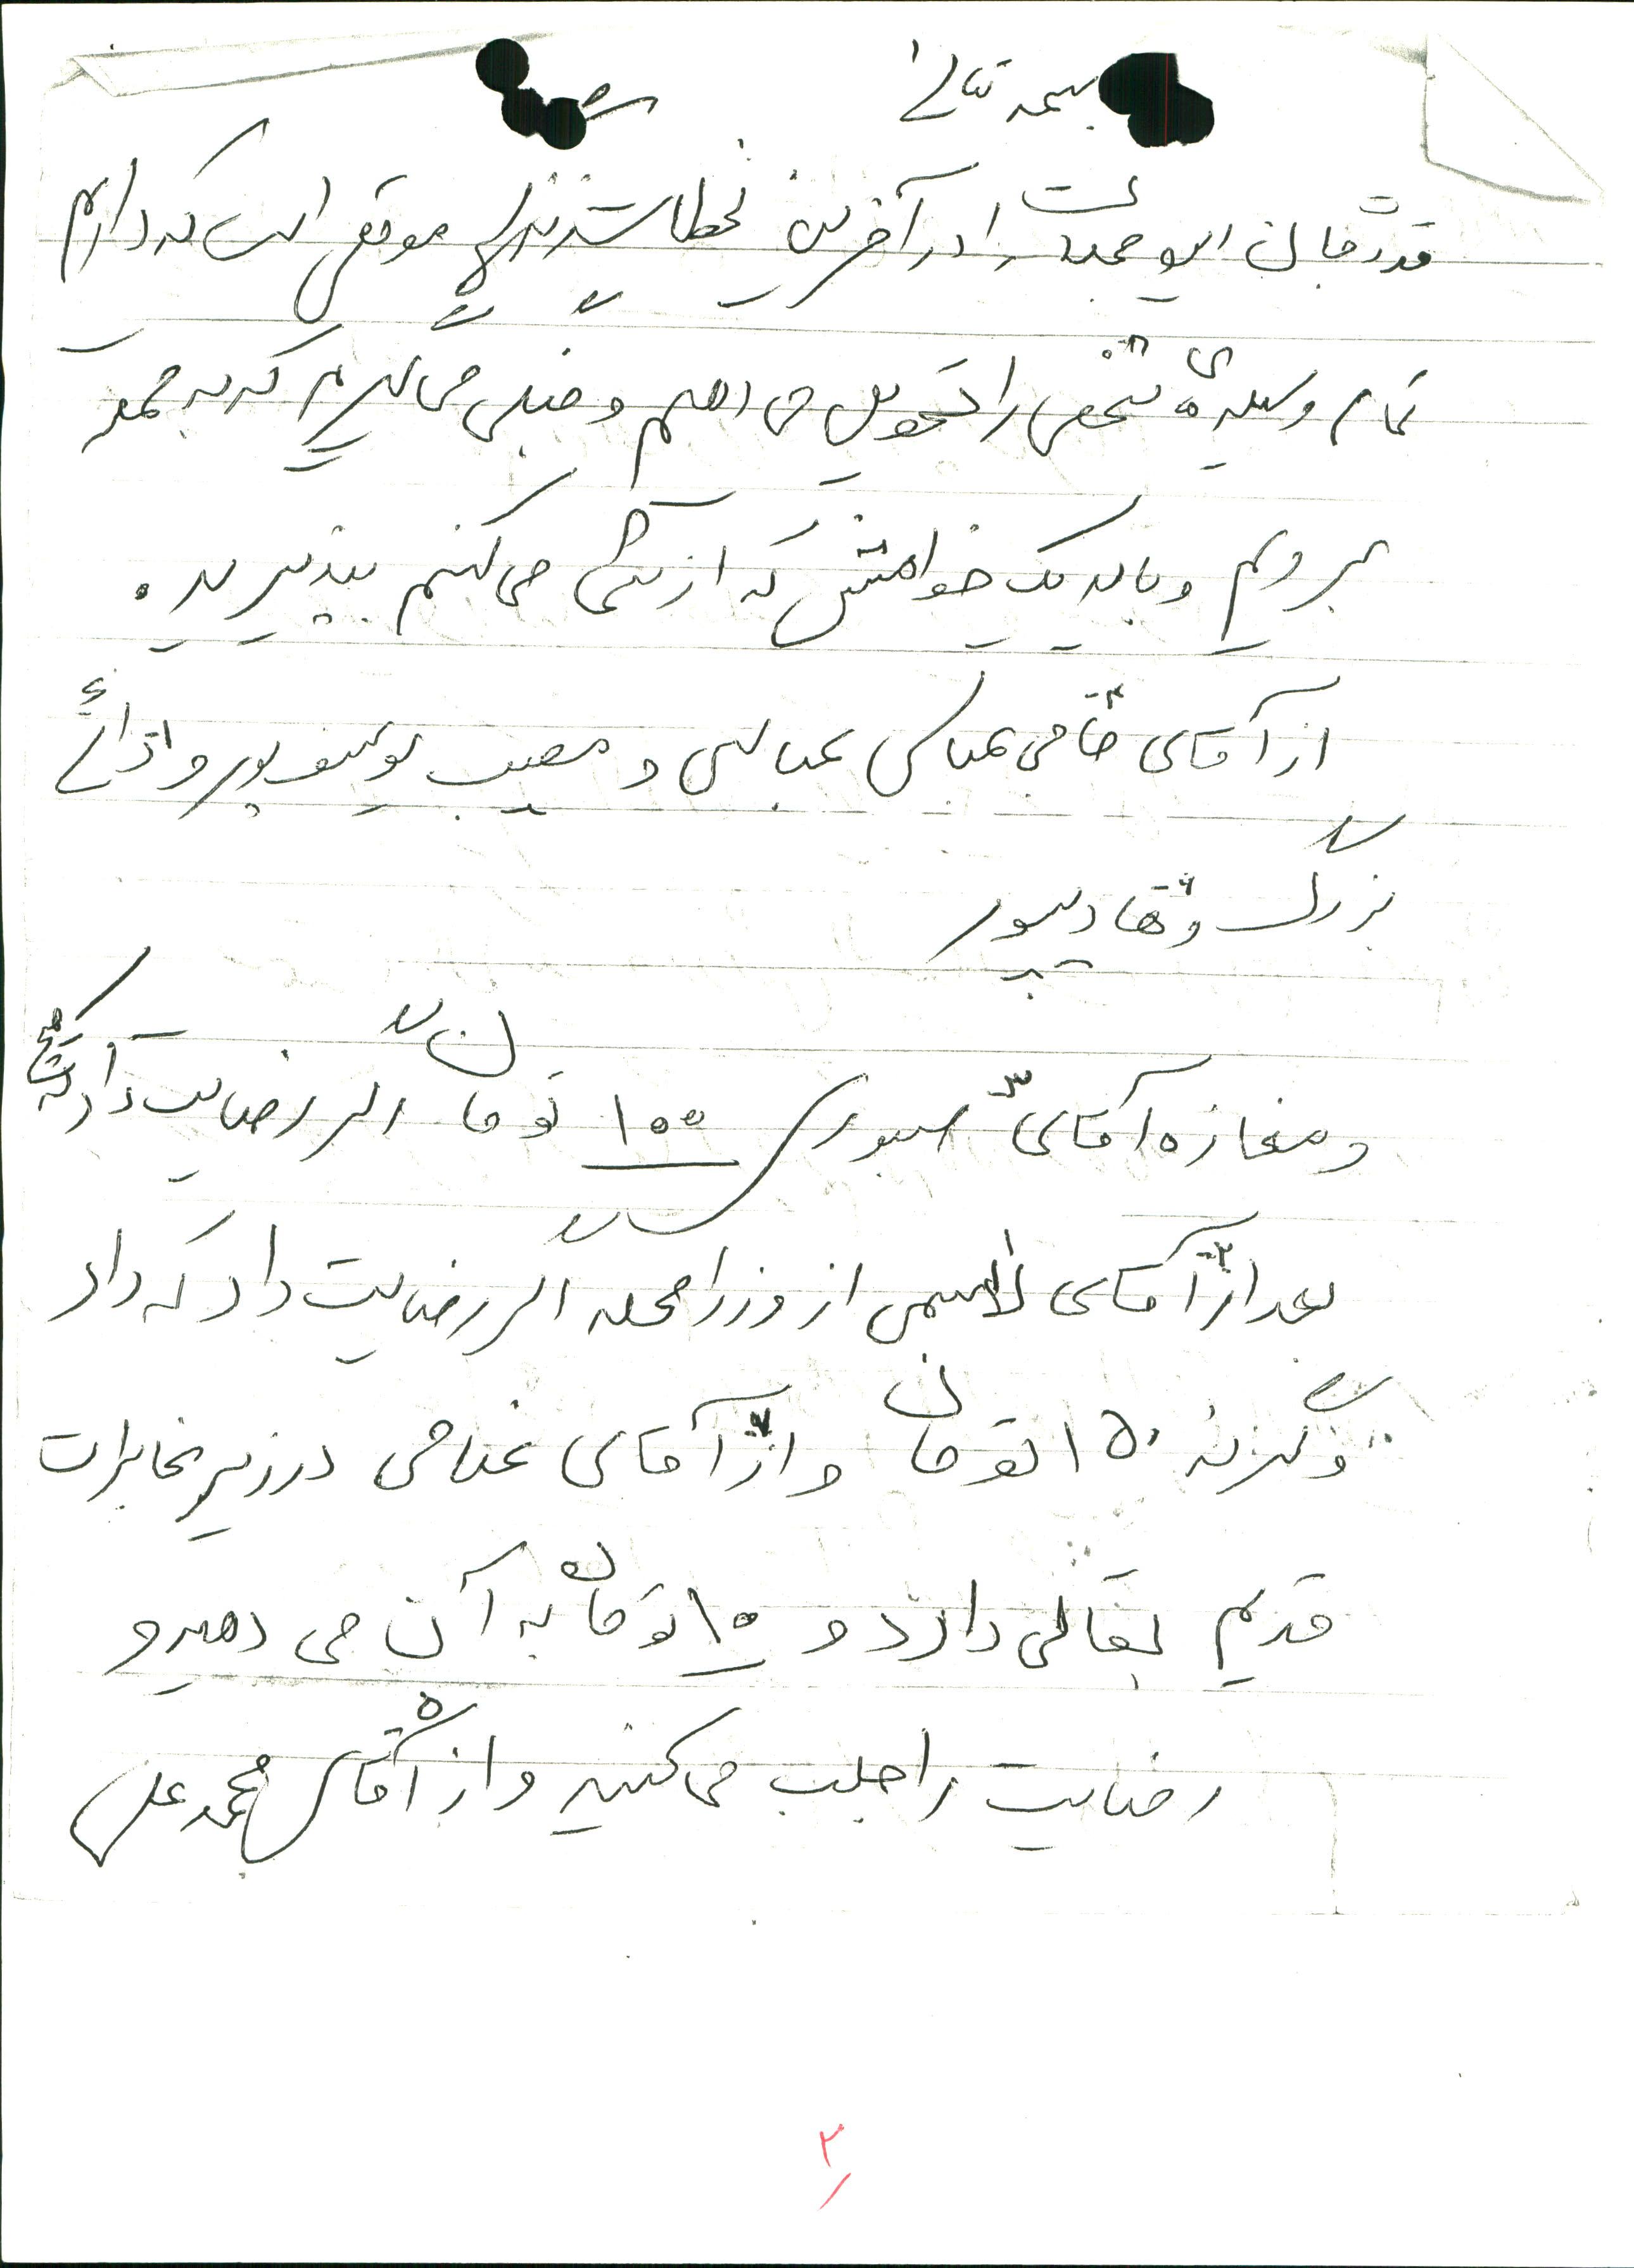 بسمه تعالی
قدرجان این وصیت را در آخرین لحظات زندگی موقعی است که دارم
تمام وسیله ی شخصی را تحویل می دهم و خیلی می گریم که به جبهه
بروم و باید یک خواهش که از شما می کنم بپذیرید.
از آقای حاجی عباس عباسی و مصیب یوسف پور و از آقای
بزرگ وقادیپور
و مغازه آقای صبوری ۱۰۰ تومان اگر رضایت داد که هیچ
بعد از آقای قاسمی از وزرا محله اگر رضایت داد که داد
وگرنه ۱۵۰ تومان و از آقای غلامی در زیر مخابرات
قدیم بقالی دارد و ۱۰ تومان به آن می دهید و
رضایت را جلب می کنید و از آقای محمد علی
۲